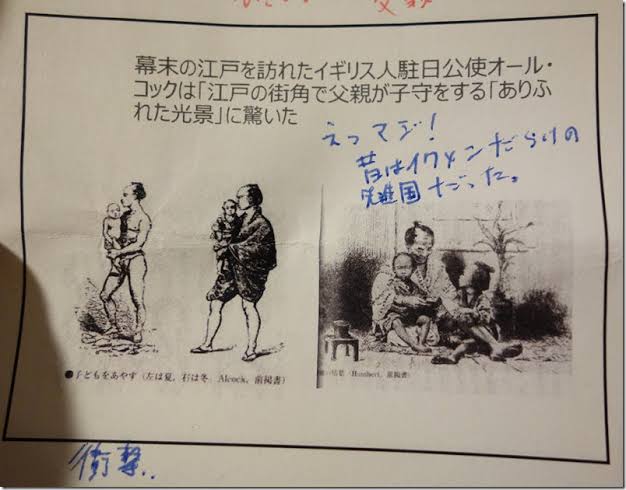 幕末の江戸を訪れたイギリス人駐日公使オール・
コックは「江戸の街角で父親が子守をする「ありふ
れた光景」に驚いた
えっマジ!
昔はイクメンだらけの
先進国だった。
●子どもをあやす(左は夏,右は冬 Alcock,前掲書)
(Humbert,前掲書)
衝撃..